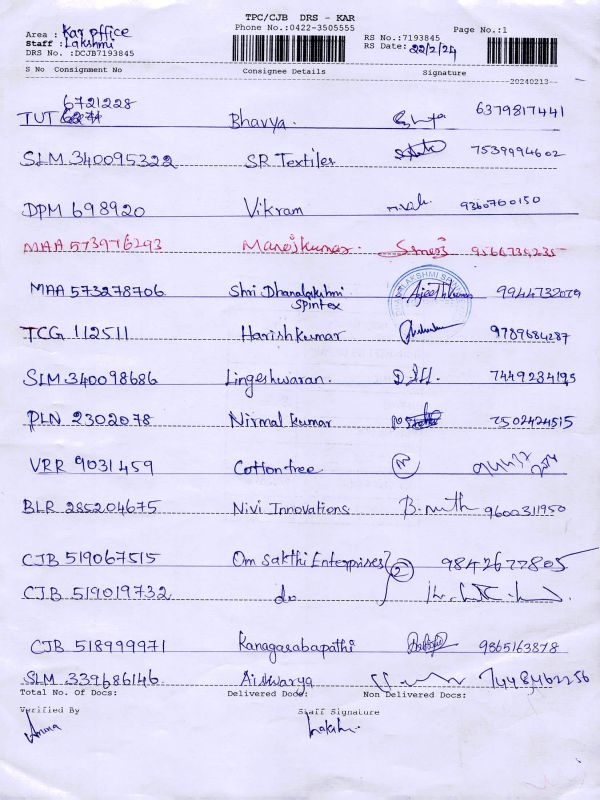 TPC/CJB DRS - KAR
Phone No.:0422-3505555
Page No.:1
Area : Kar office
Staff : Lakshmi
DRS No. :DCJB7193845
RS No.:7193845
RS Date: 22/2/24
S No Consignment No Consignee Details Signature
20240213
TUT 6721228 Bhavya. 6379817441
SLM 340095322 SR Textiles 7539994602
DPM 698920 Vikram 9360760150
MAA 573976293 Manojkumar. 9566734235
MAA 573278706 Shri Dhanalakshmi Spintex Ajeethkumar 9944732079
TCG 112511 Harishkumar 9789684287
SLM 340098686 Lingeshwaran. 7449234195
PLN 2302078 Nirmal kumar 7502424515
VRR 9031459 Cottontree
BLR 285204675 Nivi Innovations 9600311950
CJB 519067515 Om Sakthi Enterprises 2 9842677805
CJB 519019732 do
CJB 518999971 Kanagasabapathi 9865163878
SLM 339686146 Aishwarya 7448462256
Total No. Of Docs: Delivered Docs: Non Delivered Docs:
Verified By Staff Signature
Aruna Lakshmi